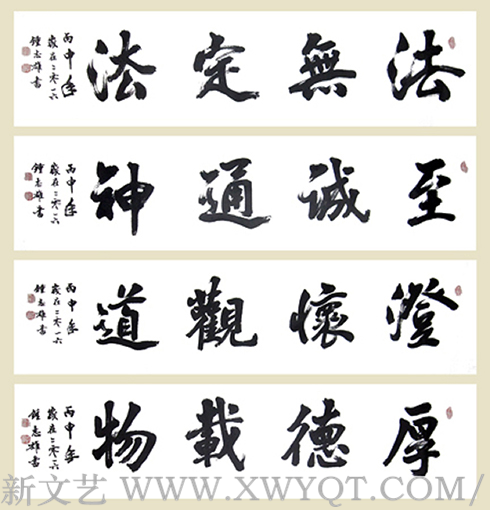 法無定法
丙申年
歲在二零一六
鍾志雄書
至诚通神
丙申年
歲在二零一六
鍾志雄書
澄懷觀道
丙申年
歲在二零一六
鍾志雄書
厚德載物
丙申年
歲在二零一六
鍾志雄書
新文艺 WWW.XWYQT.COM/